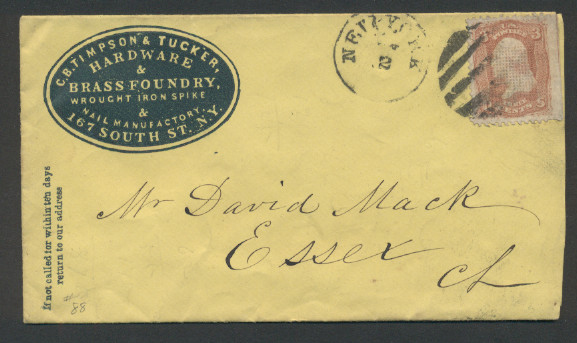 C.B. TIMPSON & TUCKER,
HARDWARE
&
BRASS FOUNDRY,
WROUGHT IRON SPIKE
&
NAIL MANUFACTORY,
167 SOUTH ST. N.Y.
NEW YORK
3 3
Mr David Mack
Essex
Ct
If not called for within ten days
return to our address
#
88